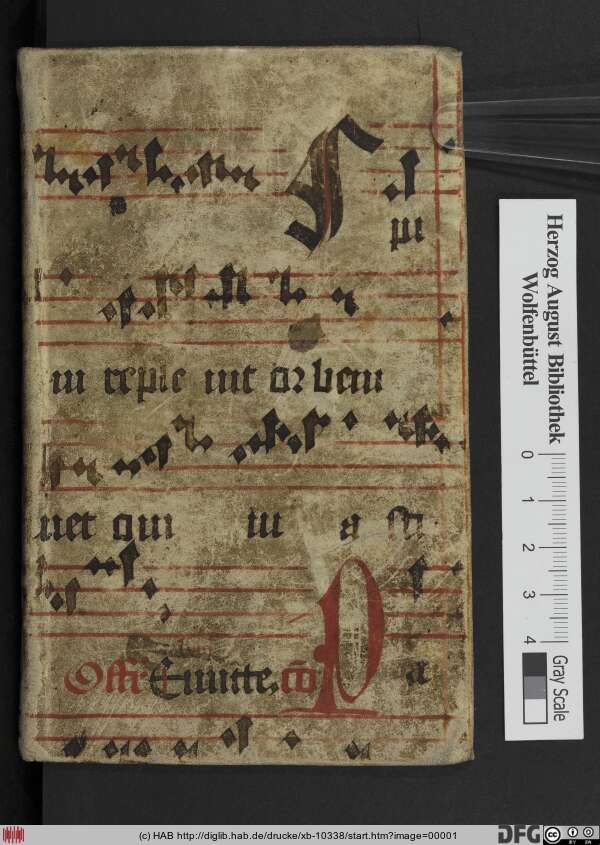 S pi
m reple uit or bem
net omi m a sci
Offr Emitte, cō P a
Herzog August Bibliothek
Wolfenbüttel
0 1 2 3 4
Gray Scale
(c) HAB http://diglib.hab.de/drucke/xb-10338/start.htm?image=00001
DFG
cc BY SA